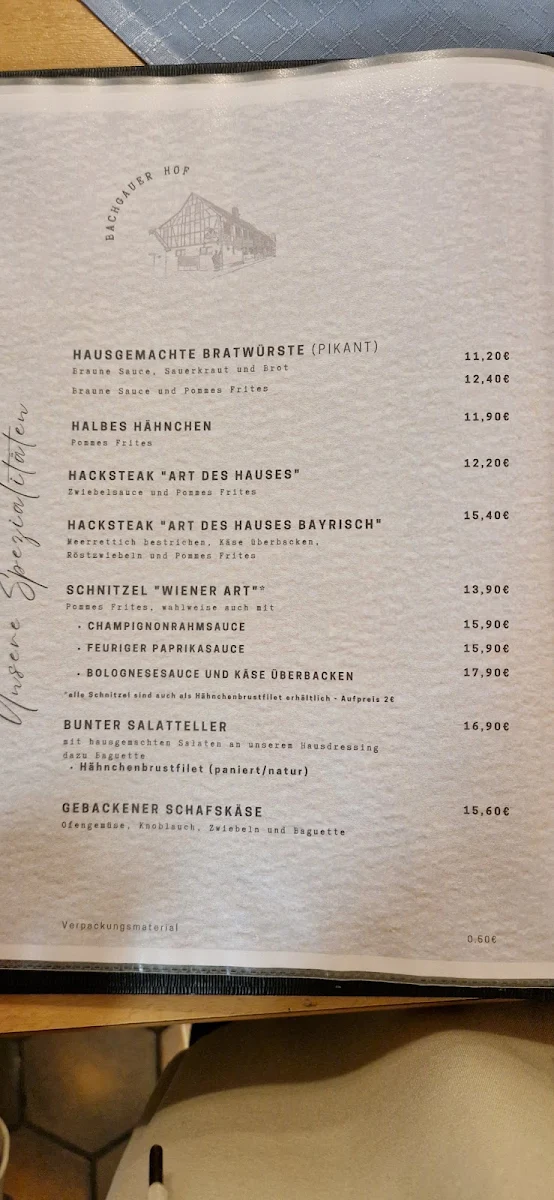 BACHGAUER HOF
Unsere Spezialitäten
HAUSGEMACHTE BRATWÜRSTE (PIKANT) 11,20€
Braune Sauce, Sauerkraut und Brot
Braune Sauce und Pommes Frites 12,40€
HALBES HÄHNCHEN 11,90€
Pommes Frites
HACKSTEAK "ART DES HAUSES" 12,20€
Zwiebelsauce und Pommes Frites
HACKSTEAK "ART DES HAUSES BAYRISCH" 15,40€
Meerrettich bestrichen, Käse überbacken,
Röstzwiebeln und Pommes Frites
SCHNITZEL "WIENER ART"* 13,90€
Pommes Frites, wahlweise auch mit
• CHAMPIGNONRAHMSAUCE 15,90€
• FEURIGER PAPRIKASAUCE 15,90€
• BOLOGNESESAUCE UND KÄSE ÜBERBACKEN 17,90€
*alle Schnitzel sind auch als Hähnchenbrustfilet erhältlich - Aufpreis 2€
BUNTER SALATTELLER 16,90€
mit hausgemachten Salaten an unserem Hausdressing
dazu Baguette
• Hähnchenbrustfilet (paniert/natur)
GEBACKENER SCHAFSKÄSE 15,60€
Ofengemüse, Knoblauch, Zwiebeln und Baguette
Verpackungsmaterial 0.50€